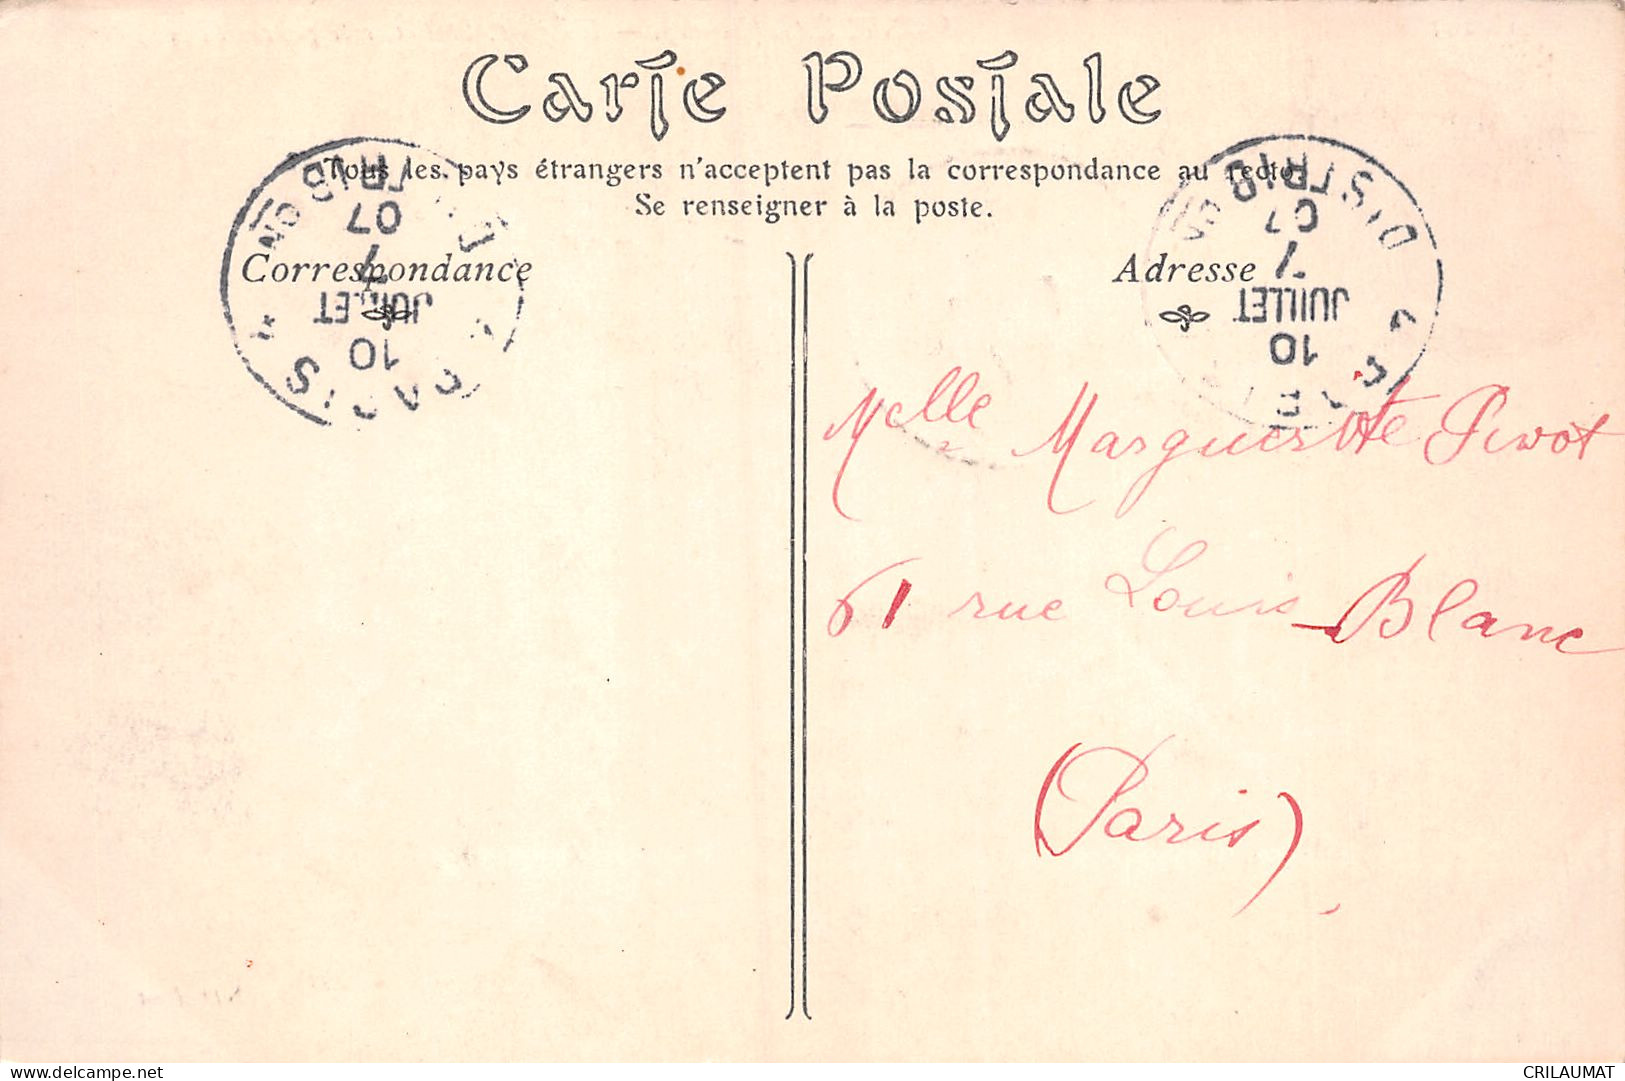 Carte Postale
Tous les pays étrangers n'acceptent pas la correspondance au recto
Se renseigner à la poste.
Correspondance
Adresse
10
JUILLET
07
DISTRIB
PARIS
10
JUILLET
07
DISTRIB
Melle Marguerite Pivot
61 rue Louis-Blanc
(Paris)
www.delcampe.net
CRILAUMAT